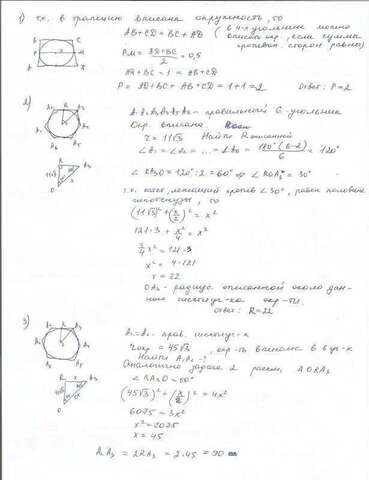 1) т.к. в трапецию вписана окружность, то
AB+CD = BC+AD (в 4-х угольник можно
вписать окр., если суммы
противоп. сторон равны)
B C
P M
A D
PM = AD+BC / 2 = 0,5
AD+BC = 1 = AB+CD
P = AD+BC+AB+CD = 1+1 = 2 Ответ: P=2
2)
A₁A₂A₃A₄A₅A₆ - правильный 6-угольник
Окр. вписана
r = 11√3 Найти R описанной
∠A₁ = ∠A₂ = ... = ∠A₆ = 180°(6-2) / 6 = 120°
∠RA₃O = 120°:2 = 60° ⇒ ∠ROA₃ = 30°
т.к. катет, лежащий против ∠30°, равен половине
гипотенузы, то
(11√3)² + (x/2)² = x²
121·3 + x²/4 = x²
3/4 x² = 121·3
x² = 4·121
x = 22
OA₃ - радиус описанной около дан-
ного шестиуг-ка окр-ти.
Ответ: R=22
3)
A₁-A₆ - прав. шестиуг-к
r окр = 45√3, окр-ть вписана в 6 уг-к
Найти A₂A₃ - ?
Аналогично задаче 2 рассм. ΔORA₃
∠RA₃O = 60°
(45√3)² + (x/2)² = 4x²
6075 = 3x²
x² = 2025
x = 45
A₂A₃ = 2RA₃ = 2·45 = 90